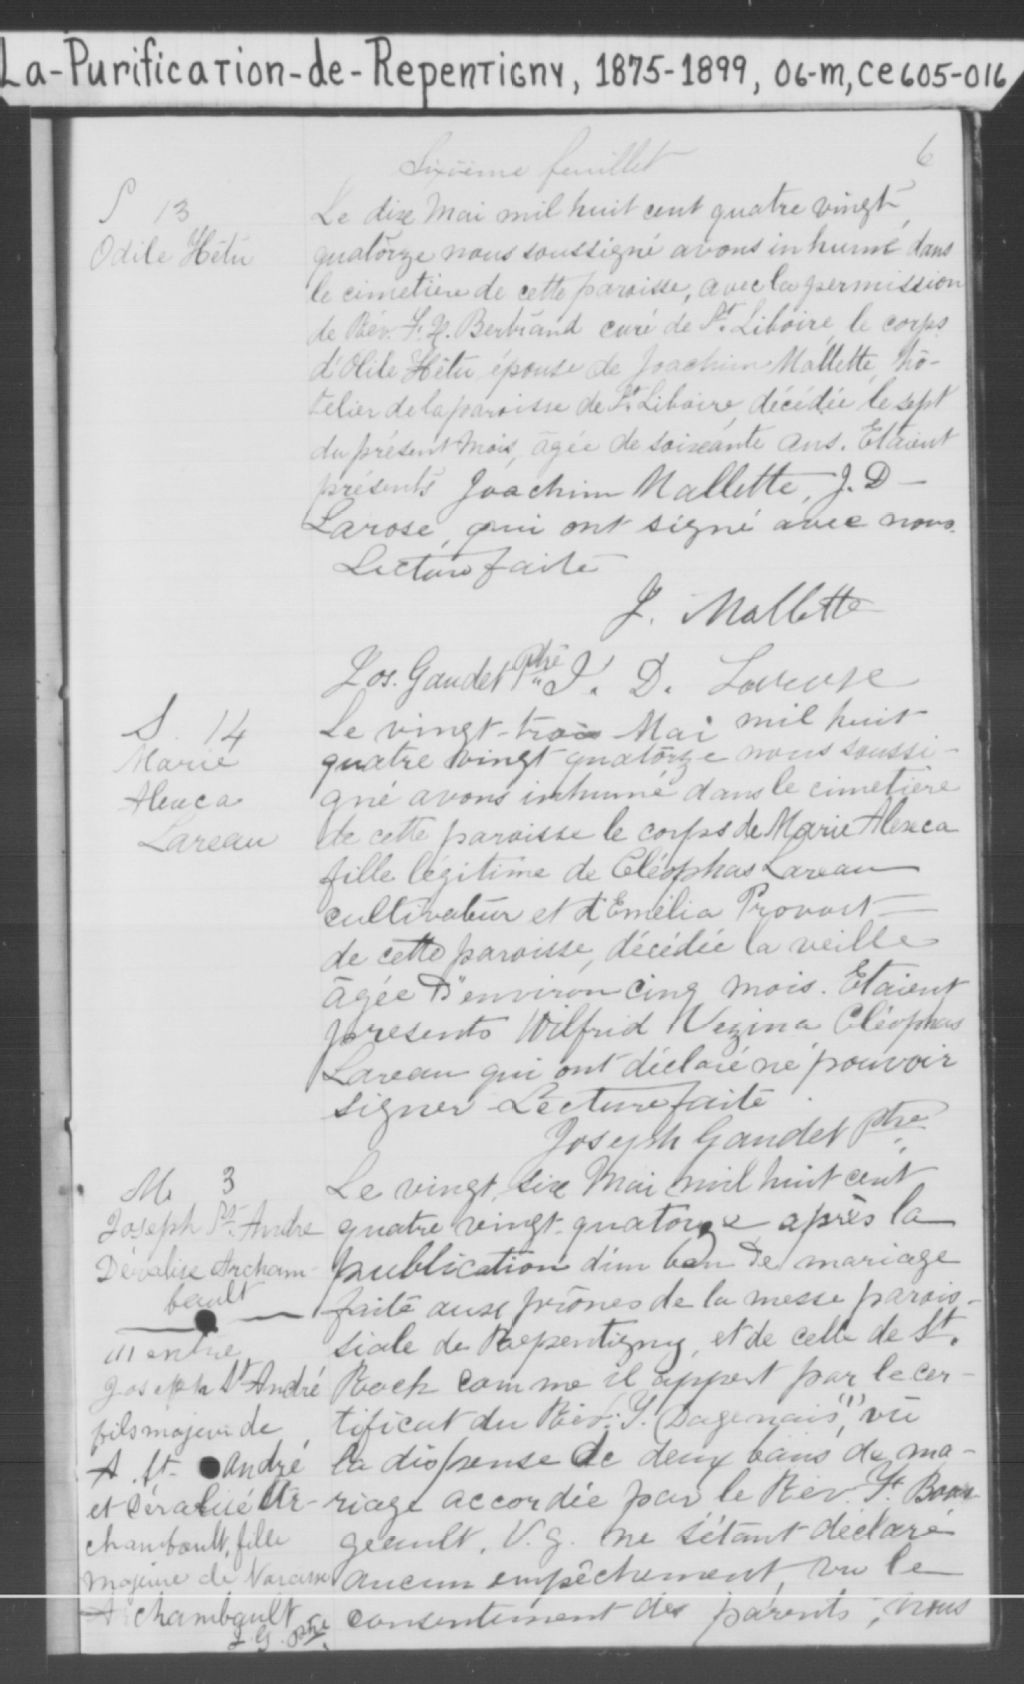 La-Purification-de-Repentigny, 1875-1899, 06-m, CE605-016
Sixième feuillet
6
S 13
Odile Hétu
Le dix Mai mil huit cent quatre vingt
quatorze nous soussigné avons inhumé dans
le cimetière de cette paroisse, avec la permission
de Rév. F. X. Bertrand curé de St. Liboire, le corps
d'Olile Hétu épouse de Joachim Mallette, hô-
telier de la paroisse de St. Liboire, décédée le sept
du présent mois, âgée de soixante ans. Etaient
présents Joachim Mallette, J. D -
Larose, qui ont signé avec nous.
Lecture faite
J. Mallette
Jos. Gaudet Ptre J. D. Larose
S. 14
Marie
Alexca
Lareau
Le vingt-trois Mai mil huit
quatre vingt quatorze nous soussi-
gné avons inhumé dans le cimetière
de cette paroisse le corps de Marie Alexca
fille légitime de Cléophas Lareau
cultivateur et d'Emélia Provost
de cette paroisse, décédée la veille
âgée d'environ cinq mois. Etaient
présents Wilfrid Vezina Cléophas
Lareau qui ont déclaré ne pouvoir
signer - Lecture faite
Joseph Gaudet Ptre
M. 3
Joseph St. André
Déralise Archam-
bault
Le vingt six Mai mil huit cent
quatre vingt-quatorze après la
publication d'un ban de mariage
faite aux prônes de la messe parois-
siale de Repentigny, et de celle de St.
Roch comme il appert par le cer-
tificat du Rév. J. Dagenais, (1) vu
la dispense de deux bans de ma-
riage accordée par le Rév. F. Bour-
geault, V. g. ne s'étant déclaré
aucun empêchement, vu le
consentement des parents, nous
(1) entre
Joseph St André
fils majeur de
A. St- André
et Déralise Ar-
chambault, fille
majeure de Narcisse
Archambault
J. G. Ptre